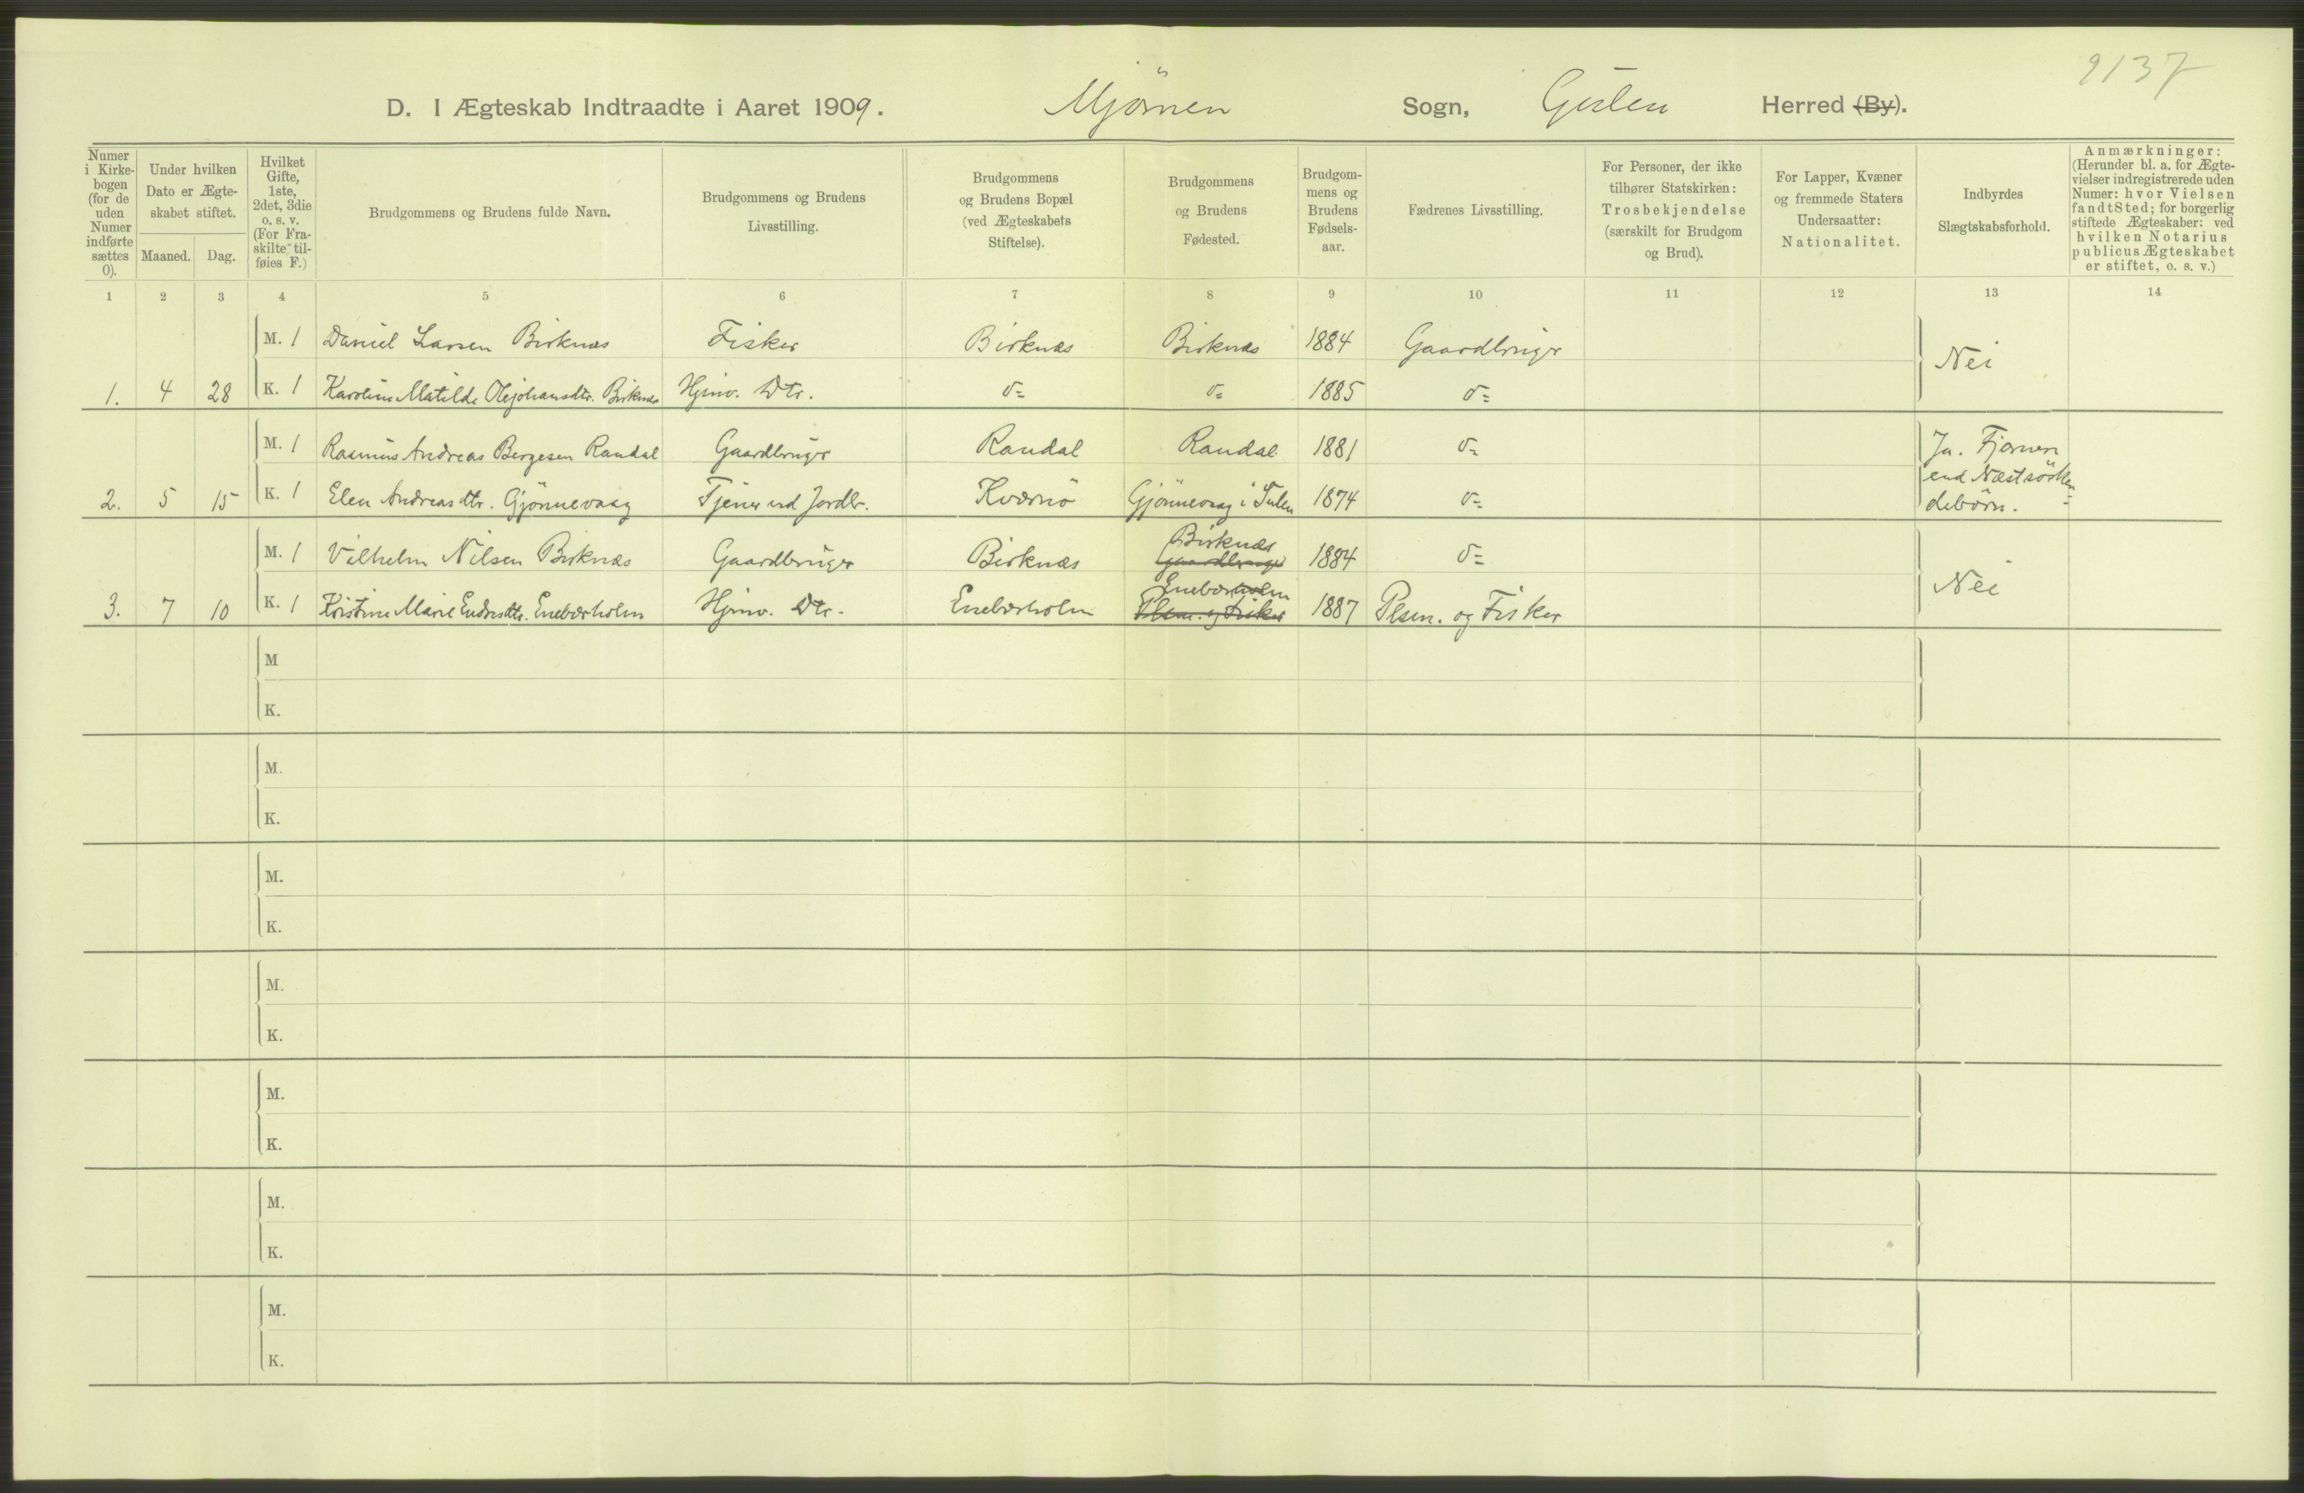 9137
D. I Ægteskab Indtraadte i Aaret 1909. Mjömen Sogn, Gulen Herred (By).
Numer i Kirkebogen (for de uden Numer indførte sættes 0).
Under hvilken Dato er Ægteskabet stiftet.
Maaned. Dag.
Hvilket Gifte, 1ste, 2det, 3die o. s. v. (For Fraskilte tilføies F.)
Brudgommens og Brudens fulde Navn.
Brudgommens og Brudens Livsstilling.
Brudgommens og Brudens Bopæl (ved Ægteskabets Stiftelse).
Brudgommens og Brudens Fødested.
Brudgommens og Brudens Fødselsaar.
Fædrenes Livsstilling.
For Personer, der ikke tilhører Statskirken: Trosbekjendelse (særskilt for Brudgom og Brud).
For Lapper, Kvæner og fremmede Staters Undersaatter: Nationalitet.
Indbyrdes Slægtskabsforhold.
Anmærkninger: (Herunder bl. a. for Ægtevielser indregistrerede uden Numer: hvor Vielsen fandt Sted; for borgerlig stiftede Ægteskaber: ved hvilken Notarius publicus Ægteskabet er stiftet, o. s. v.)
1 2 3 4 5 6 7 8 9 10 11 12 13 14
M. 1 Daniel Larsen Birknæs Fisker Birknæs Birknæs 1884 Gaardbruger Nei
1. 4 28 K. 1 Karoline Matilde Olejohansdtr. Birknæs Hjmv. Dtr. do= do= 1885 do=
M. 1 Rasmus Andreas Børgesen Randal Gaardbruger Randal Randal 1881 do= Ja. Fjernere
2. 5 15 K. 1 Elen Andreasdtr. Gjönnevaag Tjener ved Jordbr. Kværnö Gjönnevaag i Gulen 1874 do= end Næstsösken=
debörn.
M. 1 Vilhelm Nilsen Birknæs Gaardbruger Birknæs Birknæs Gaardbruger 1884 do= Nei
3. 7 10 K. 1 Kristine Marie Endresdtr. Enebærholm Hjmv. Dtr. Enebærholm Enebærholm Plsm. og Fisker 1887 Plsm. og Fisker
M
K.
M.
K.
M.
K.
M.
K.
M.
K.
M.
K.
M.
K.